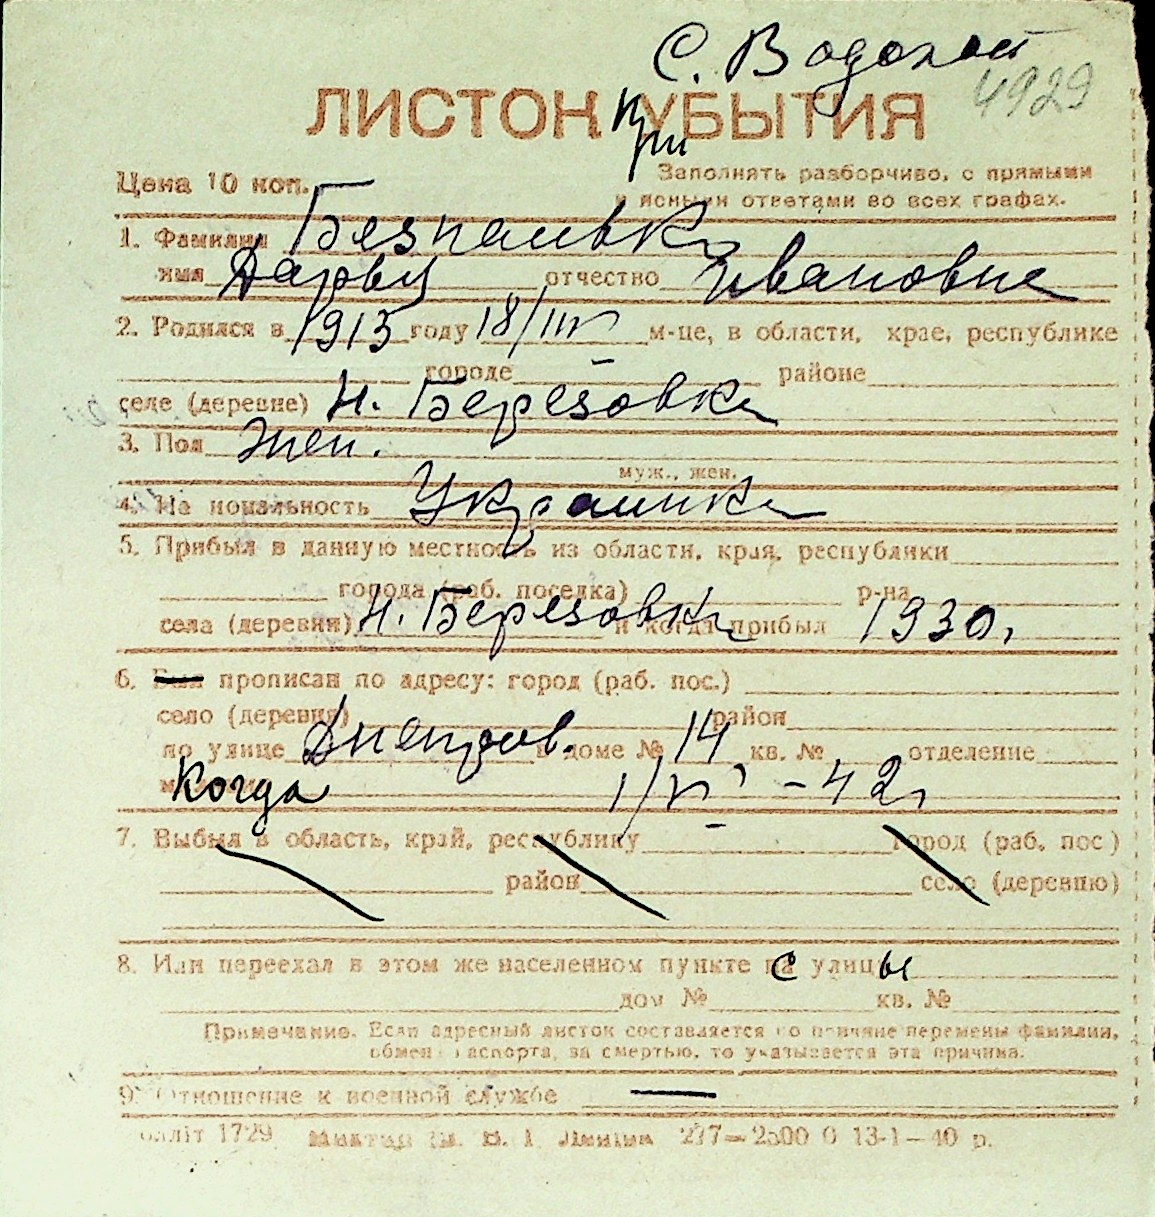 С. Водопой
4929
ЛИСТОК При УБЫТИЯ
Цена 10 коп.
Заполнять разборчиво, с прямыми
и ясными ответами во всех графах.
1. Фамилия
имя Дарья отчество Ивановна
2. Родился в 1915 году 18/III м-це, в области, крае, республике
городе районе
селе (деревне) Н. Березовка
3. Пол жен.
муж., жен.
4. Национальность Украинка
5. Прибыл в данную местность из области, края, республики
города (раб. поселка) р-на
села (деревни) Н. Березовка и когда прибыл 1930.
6. Был прописан по адресу: город (раб. пос.)
село (деревня) район
по улице Днепров. в доме № 14 кв. № отделение
Когда 1/VI - 42
7. Выбыл в область, край, республику город (раб. пос)
район село (деревню)
8. Или переехал в этом же населенном пункте с улицы
дом № кв. №
Примечание. Если адресный листок составляется по причине перемены фамилии,
обмена паспорта, за смертью, то указывается эта причина.
9. Отношение к военной службе —
1729 277—2500 0 13-1—40 р.